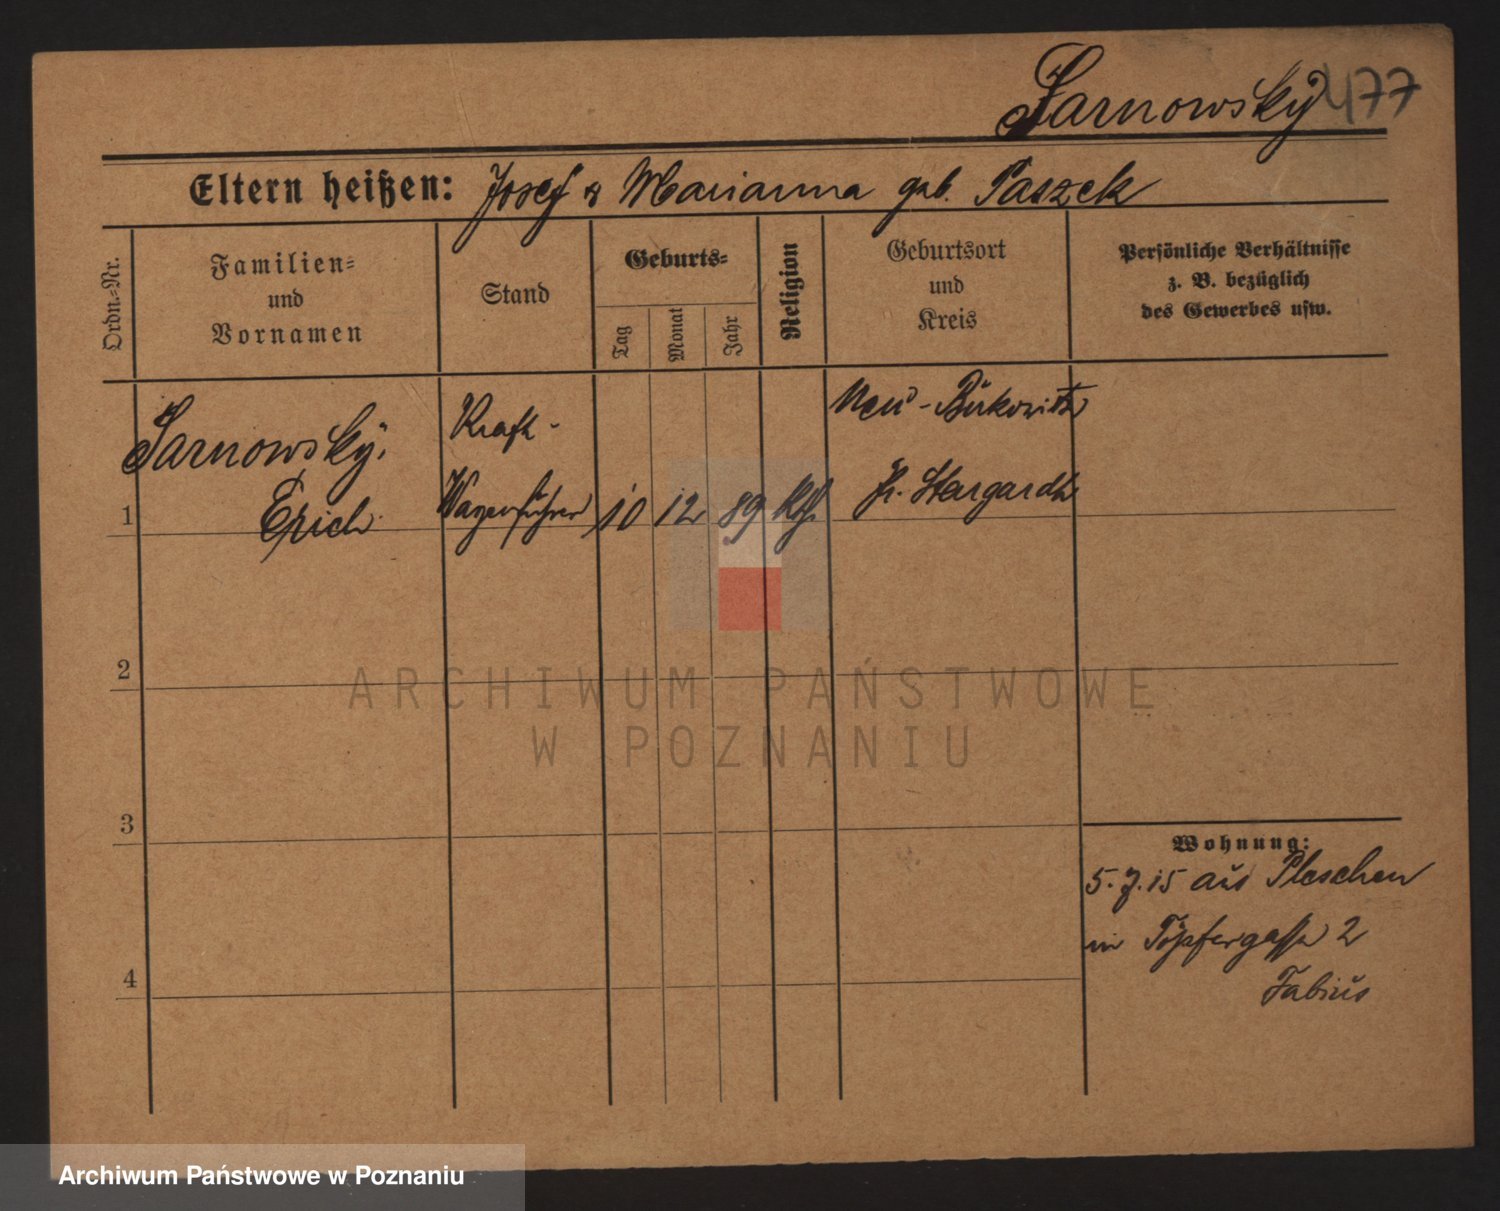 Sarnowsky 477
Eltern heißen: Josef & Marianna geb. Paszek
Ordn.-Nr.
Familien-
und
Vornamen
Stand
Geburts-
Tag
Monat
Jahr
Religion
Geburtsort
und
Kreis
Persönliche Verhältnisse
z. B. bezüglich
des Gewerbes usw.
Sarnowsky.
Erich
Kraft-
Wagenführer
10 12 89 kth.
Neu-Bukowitz
Kr. Stargardt
1
2
3
4
Wohnung:
5.7.15 aus Pleschen
in Töpfergasse 2
Fabius
ARCHIWUM PAŃSTWOWE
W POZNANIU
Archiwum Państwowe w Poznaniu